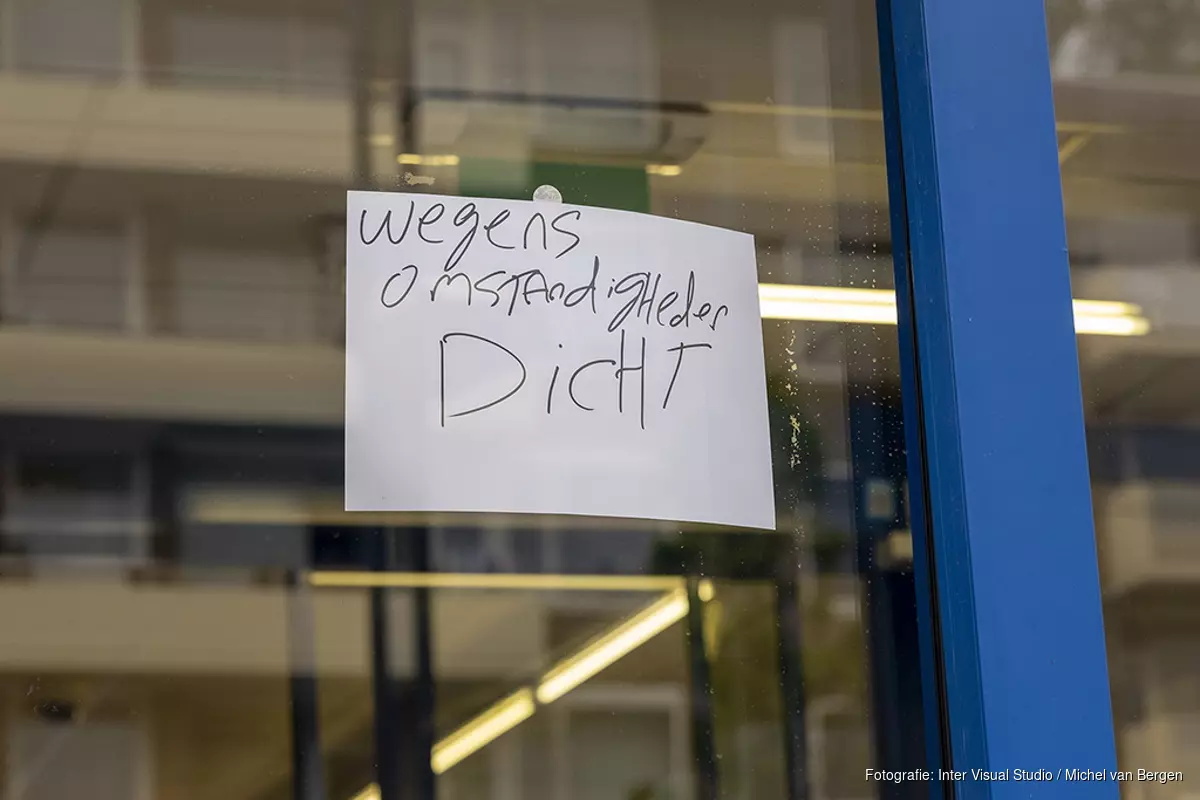 wegens
omstandigheden
DicHT
Fotografie: Inter Visual Studio / Michel van Bergen